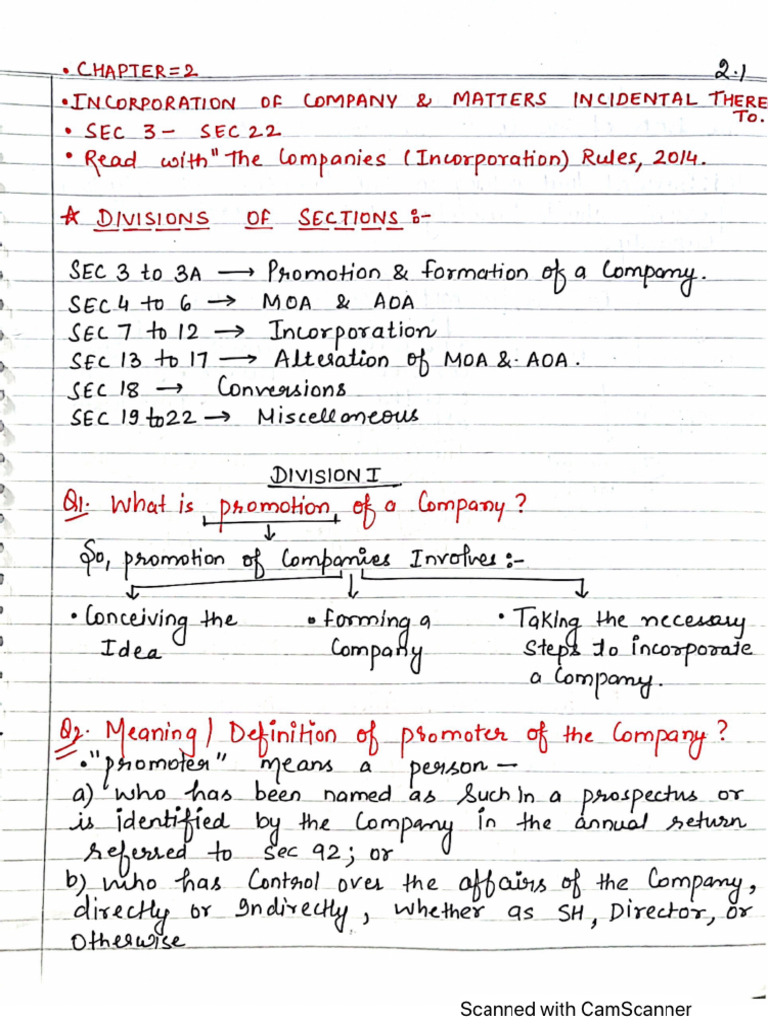 • CHAPTER=2
2.1
• INCORPORATION OF COMPANY & MATTERS INCIDENTAL THERE TO.
• SEC 3 - SEC 22
• Read with "The Companies (Incorporation) Rules, 2014.
☆ DIVISIONS OF SECTIONS :-
SEC 3 to 3A → Promotion & formation of a Company.
SEC 4 to 6 → MOA & AOA
SEC 7 to 12 → Incorporation
SEC 13 to 17 → Alteration of MOA & AOA.
SEC 18 → Conversions
SEC 19 to 22 → Miscelloneous
DIVISION I
Q1. What is promotion of a Company?
So, promotion of Companies Involves :-
• Conceiving the
Idea
• forming a
Company
• Taking the necessary
steps to incorporate
a Company.
Q2. Meaning / Definition of promoter of the Company?
• "promoter" means a person —
a) who has been named as Such In a prospectus or
is identified by the Company in the annual return
referred to sec 92; or
b) who has Control over the affairs of the Company,
directly or Indirectly, whether as SH, Director, or
Otherwise
Scanned with CamScanner